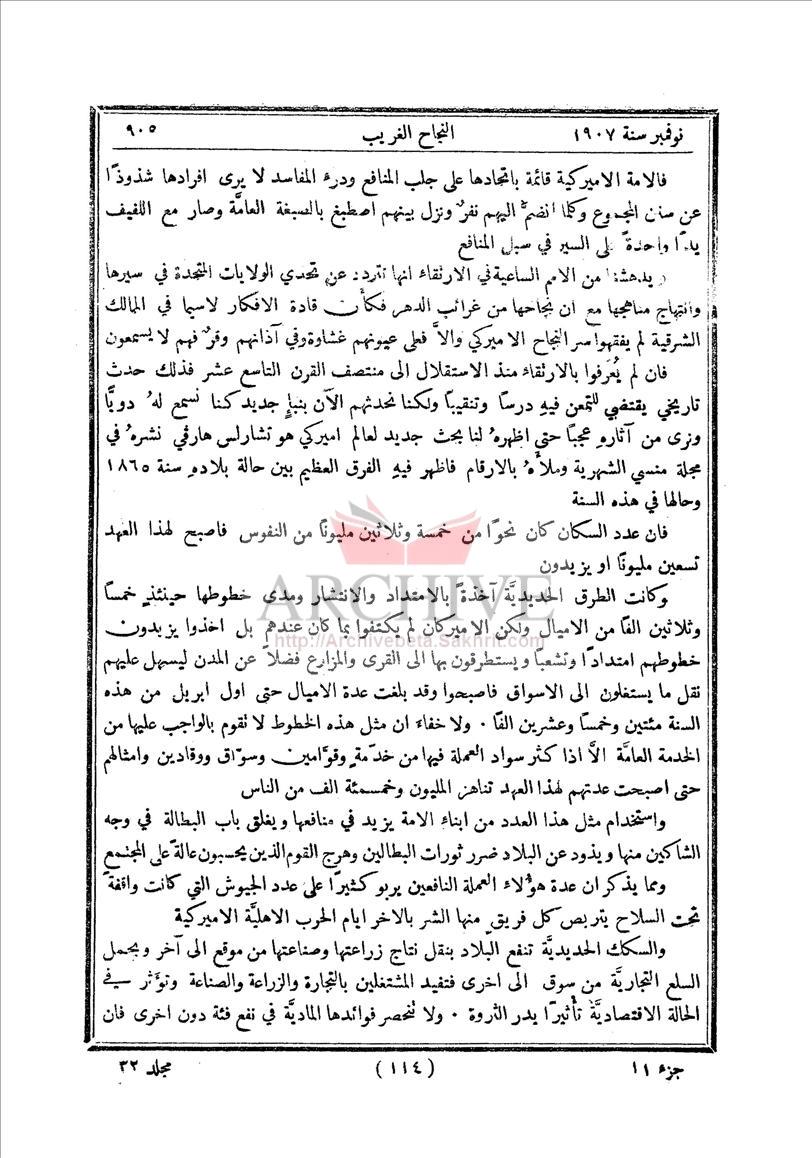 نوفمبر سنة ١٩٠٧ النجاح الغريب ٩٠٥
فالامة الاميركية قائمة باتحادها على جلب المنافع ودرء المفاسد لا يرى افرادها شذوذًا
عن سنن المجموع وكلما انضمَّ اليهم نفرٌ ونزل بينهم اصطبغ بالصبغة العامَّة وصار مع اللفيف
يدًا واحدةً على السير في سبل المنافع
ويدهشنا من الامم الساعية في الارتقاء انها تتردد عن تحدي الولايات المتحدة في سيرها
وانتهاج مناهجها مع ان نجاحها من غرائب الدهر فكأن قادة الافكار لاسيما في الممالك
الشرقية لم يفقهوا سر النجاح الاميركي والاَّ فعلى عيونهم غشاوة وفي آذانهم وقرٌ فهم لا يسمعون
فان لم يُعرَفوا بالارتقاء منذ الاستقلال الى منتصف القرن التاسع عشر فذلك حدث
تاريخي يقتضي للتمعن فيهِ درسًا وتنقيبًا ولكننا نحدثهم الآن بنباءٍ جديد كنا نسمع لهُ دويًّا
ونرى من آثارهِ عجبًا حتى اظهرهُ لنا بحث جديد لعالم اميركي هو تشارلس هارفي نشرهُ في
مجلة منسي الشهرية وملأهُ بالارقام فاظهر فيهِ الفرق العظيم بين حالة بلادهِ سنة ١٨٦٥
وحالها في هذه السنة
فان عدد السكان كان نحوًا من خمسة وثلاثين مليونًا من النفوس فاصبح لهذا العهد
تسعين مليونًا او يزيدون
وكانت الطرق الحديديَّة آخذةً بالامتداد والانتشار ومدى خطوطها حينئذٍ خمسًا
وثلاثين الفًا من الاميال ولكن الاميركان لم يكتفوا بما كان عندهم بل اخذوا يزيدون
خطوطهم امتدادًا وتشعبًا ويستطرقون بها الى القرى والمزارع فضلاً عن المدن ليسهل عليهم
نقل ما يستغلون الى الاسواق فاصبحوا وقد بلغت عدة الاميال حتى اول ابريل من هذه
السنة مئتين وخمسًا وعشرين الفًا ٠ ولا خفاء ان مثل هذه الخطوط لا تقوم بالواجب عليها من
الخدمة العامَّة الاَّ اذا كثر سواد العملة فيها من خدَمةٍ وقوَّامين وسوَّاق ووقادين وامثالهم
حتى اصبحت عدتهم لهذا العهد تناهز المليون وخمسمئة الف من الناس
واستخدام مثل هذا العدد من ابناء الامة يزيد في منافعها ويغلق باب البطالة في وجه
الشاكين منها ويذود عن البلاد ضرر ثورات البطالين وهرج القوم الذين يحسبون عالةً على المجتمع
ومما يذكر ان عدة هؤلاء العملة النافعين يربو كثيرًا على عدد الجيوش التي كانت واقفةً
تحت السلاح يتربص كل فريق منها الشر بالاخر ايام الحرب الاهليَّة الاميركية
والسكك الحديديَّة تنفع البلاد بنقل نتاج زراعتها وصناعتها من موقع الى آخر وبحمل
السلع التجاريَّة من سوق الى اخرى فتفيد المشتغلين بالتجارة والزراعة والصناعة وتؤثر في
الحالة الاقتصاديَّة تأثيرًا يدر الثروة ٠ ولا تنحصر فوائدها الماديَّة في نفع فئة دون اخرى فان
جزء ١١ (١١٤) مجلد ٣٢
ARCHIVE
http://Archivebeta.Sakhrit.com